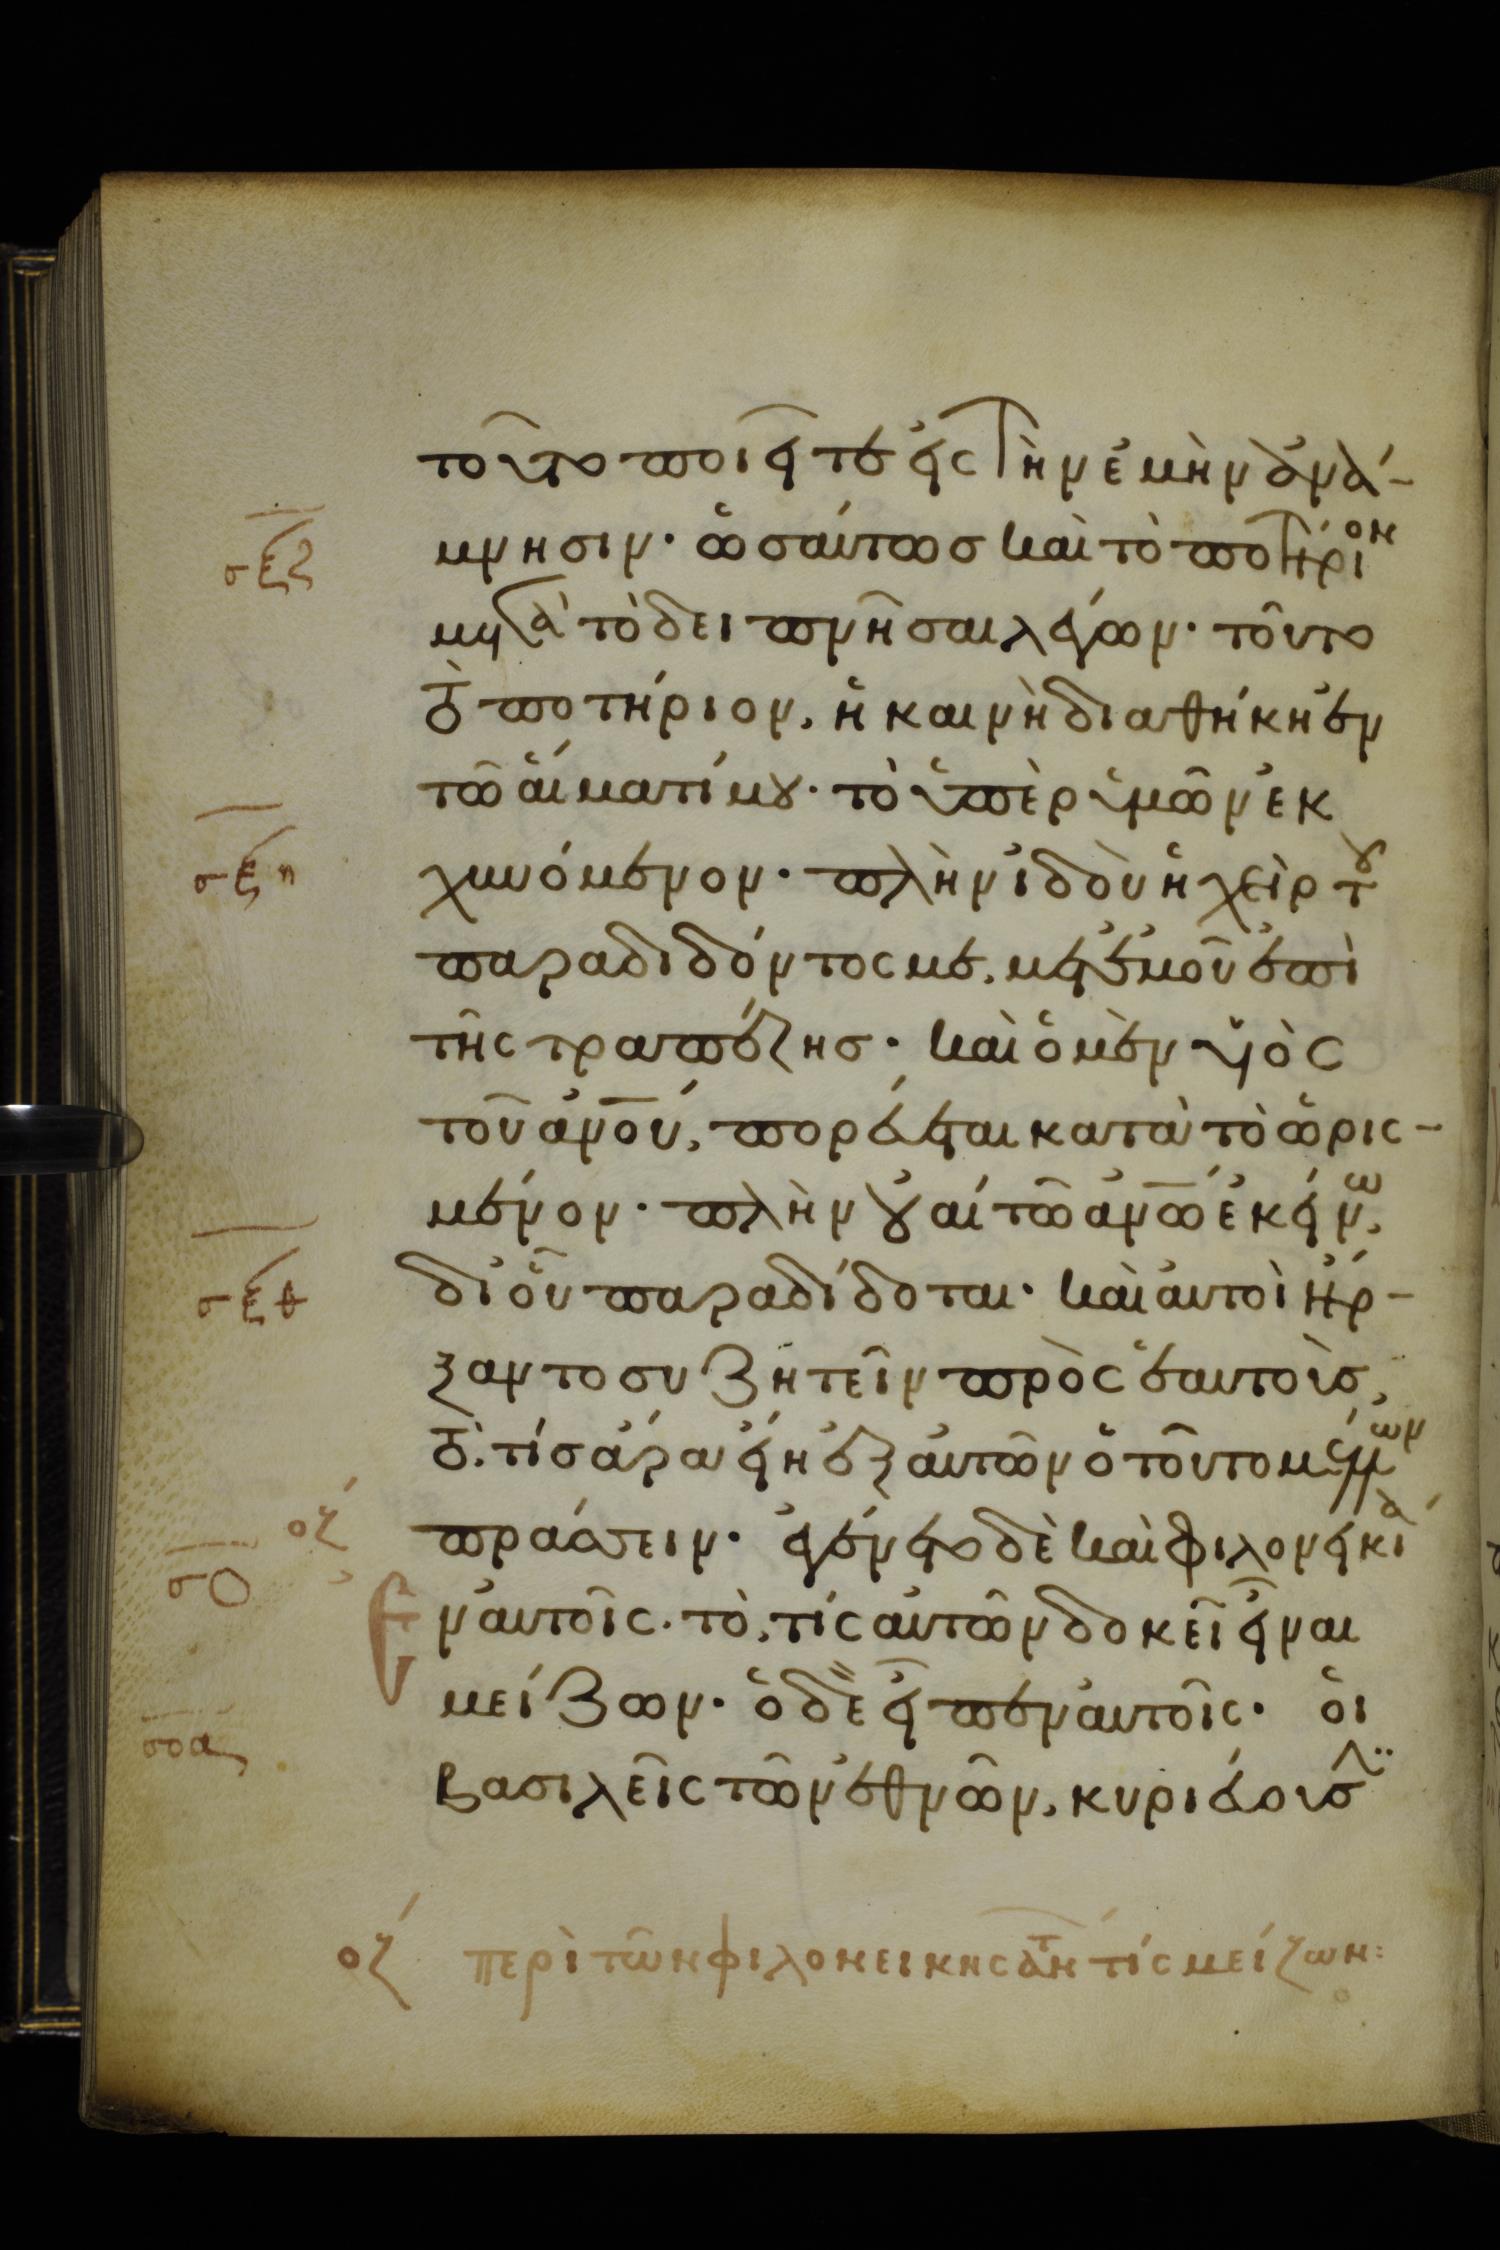 τοῦτο ποιεῖτε εἰς τὴν ἐμὴν ἀνά-
μνησιν· ὡσαύτωσ καὶ τὸ ποτήριον
σξζ
μετὰ τὸ δειπνῆσαι λέγων· τοῦτο
τὸ ποτήριον, ἡ καινὴ διαθήκη ἐν
τῶ αἵματί μου· τὸ ὑπὲρ ὑμῶν ἐκ
σξη
χυνόμενον· πλὴν ἰδοὺ ἡ χεὶρ του
παραδιδόντος με, μετ' ἐμοῦ ἐπὶ
τῆς τραπέζησ· καὶ ὁ μὲν υἱὸς
τοῦ ανου, πορεύεται κατὰ τὸ ὡρις-
μένον· πλὴν οὐαί τῶ ανω ἐκείνω,
σξθ
δι' οὗ παραδίδοται· καὶ αὐτοὶ ἤρ-
ξαντο συζητεῖν πρὸς ἑαυτοὺσ,
τὸ. τίσ ἄρα εἴη ἐξ αὐτῶν ὁ τοῦτο μέλλων
οζ
πράσσειν· ἐγένετο δὲ καὶ φιλονεικία
σο
ἐν αὐτοῖς. τὸ, τίς αὐτῶν δοκεῖ εἶναι
μείζων· ὁ δὲ εἶπεν αὐτοῖς· οἱ
σοα
βασιλεῖς τῶν ἐθνῶν, κυριεύουσιν
οζ περὶ τῶν φιλονεικησάντ τίς μείζων: